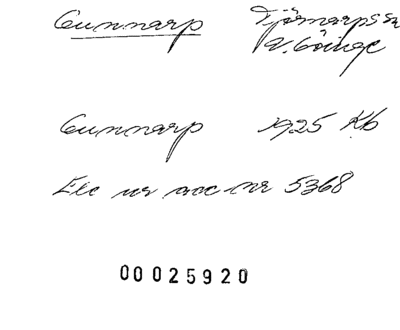 Gunnarp Tjörnarps sn
V. Göinge
Gunnarp 1925 Kb
Exc ur acc nr 5368
00 025920